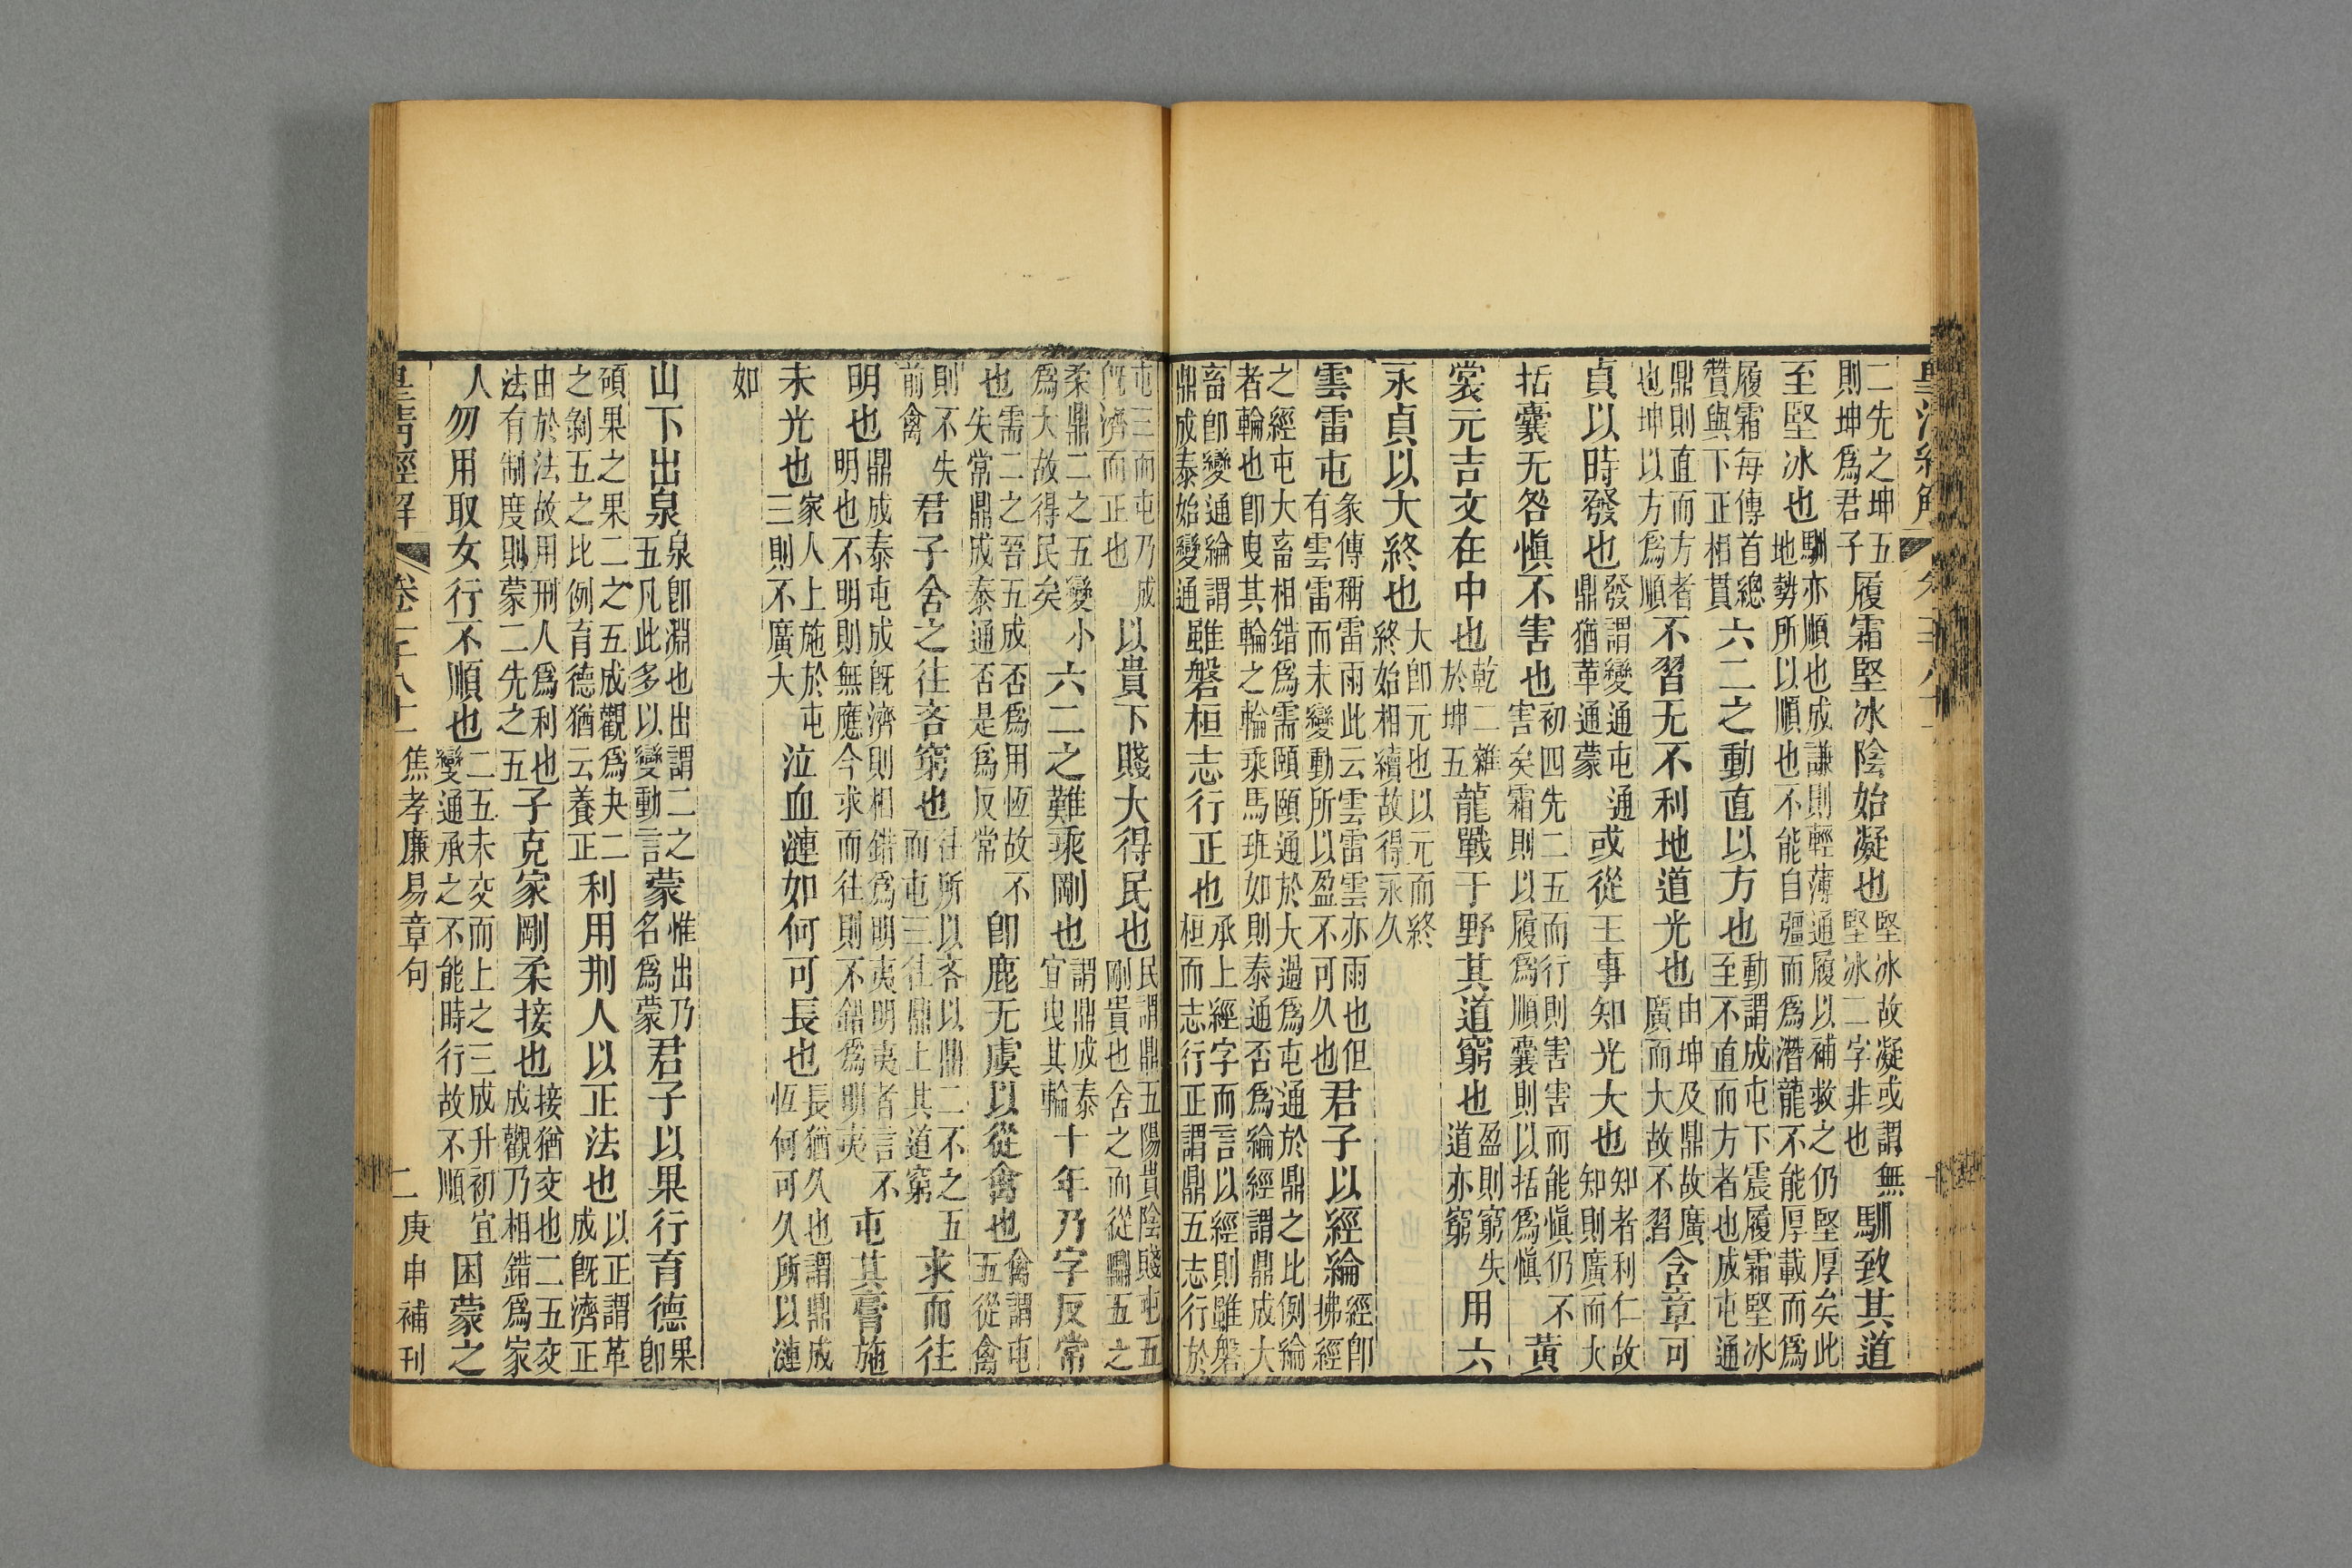 二先之坤五則坤爲君子履霜堅冰陰始凝也堅冰故凝或謂無堅冰二字非也馴致其道
至堅冰也馴亦順也成謙則輕薄通履以補救之仍堅厚矣此地勢所以順也不能自彊而爲潛龍不能厚載而爲
履霜每傳首總贊與下正相貫六二之動直以方也動謂成屯下震履霜堅冰至不直而方者也成屯通
鼎則直而方者也坤以方爲順不習无不利地道光也由坤及鼎故廣廣而大故不習含章可
貞以時發也發謂變通屯通鼎猶革通蒙或從王事知光大也知者利仁故知則廣而大
括囊无咎愼不害也初四先二五而行則害害而能愼仍不害矣霜則以履爲順囊則以括爲愼黃
裳元吉文在中也乾二雜於坤五龍戰于野其道窮也盈則窮失道亦窮用六
永貞以大終也大卽元也以元而終終始相續故得永久
雲雷屯彖傳稱雷雨此云雲雷雲亦雨也但有雲雷而未變動所以盈不可久也君子以經綸經卽拂經
之經屯大畜相錯爲需頤頤通於大過爲屯通於鼎之比例綸者輪也卽曳其輪之輪乘馬班如則泰通否爲綸經謂鼎成大
畜卽變通綸謂鼎成泰始變通雖磐桓志行正也承上經字而言以經則雖磐桓而志行正謂鼎五志行於
屯三而屯乃成旣濟而正也以貴下賤大得民也民謂鼎五陽貴陰賤屯五剛貴也舍之而從鼎五之
柔鼎二之五變小爲大故得民矣六二之難乘剛也謂鼎成泰宜曳其輪十年乃字反常
也需二之晉五成否爲用恆故不失常鼎成泰通否是爲反常卽鹿无虞以從禽也禽謂屯五從禽
則不失前禽君子舍之往吝窮也往所以吝以鼎二不之五而屯三往鼎上其道窮求而往
明也鼎成泰屯成旣濟則相錯爲明夷明夷者言不明也不明則無應今求而往則不錯爲明夷屯其膏施
未光也家人上施於屯三則不廣大泣血漣如何可長也長猶久也謂鼎成恆何可久所以漣
如
山下出泉泉卽淵也出謂二之五凡此多以變動言蒙惟出乃名爲蒙君子以果行育德果卽
碩果之果二之五成觀爲夬二之剝五之比例育德猶云養正利用刑人以正法也以正謂革成旣濟正
由於法故用刑人爲利也法有制度則蒙二先之五子克家剛柔接也接猶交也二五交成觀乃相錯爲家
人勿用取女行不順也二五未交而上之三成升初宜變通承之不能時行故不順困蒙之
皇清經解 卷一千八十一 焦孝廉易章句 二 庚申補刊